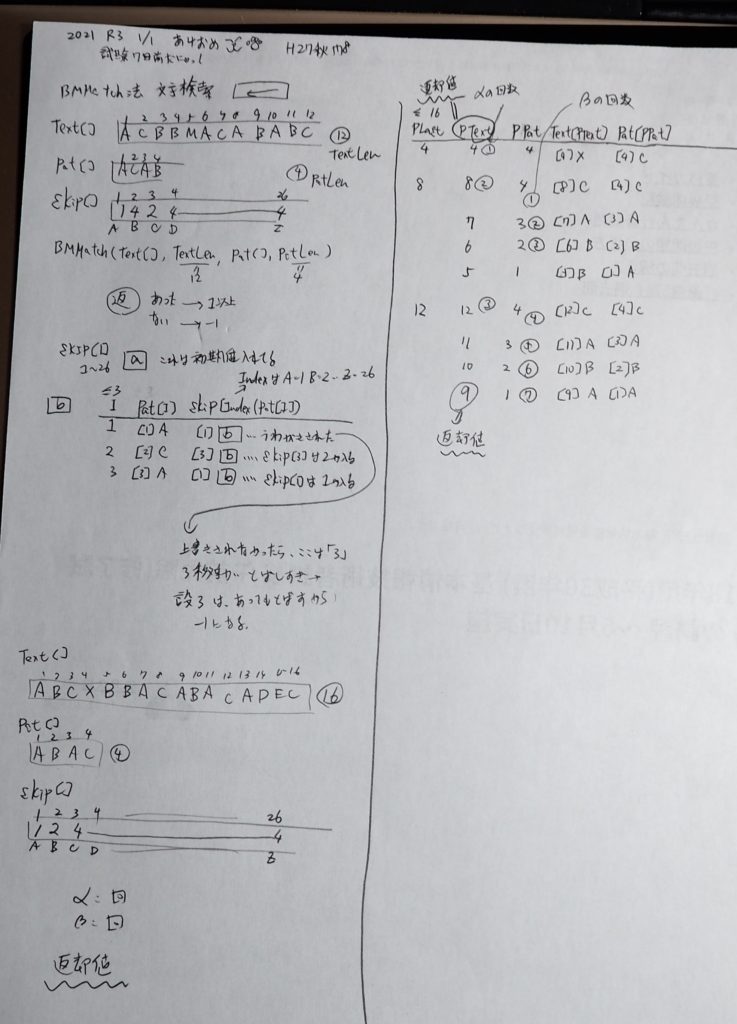 2021 R3 1/1 あけおめ H27秋 問8
試験7日前
BMMatch法 文字検索 ←
Text[] 1 2 3 4 5 6 7 8 9 10 11 12
A C B B M A C A B A B C ⑫ TextLen
Pat[] 1 2 3 4
A C A B ④ PatLen
Skip[] 1 2 3 4 26
1 4 2 4 4
A B C D Z
BMMatch(Text[], TextLen, Pat[], PatLen)
12 4
返 あった → 1以上
ない → -1
Skip[]
1~26
a これは初期値入れてる
IndexはA=1 B=2 … Z=26
b
≤3
I Pat[I] Skip[Index(Pat[I])]
1 [1]A [1] b … うわがきされた
2 [2]C [3] b … Skip[3]は2が入る
3 [3]A [1] b … Skip[1]は1が入る
上書きされなかったら、ここは「3」
3移動 とばしすぎ→
設3は、あってもとばすから
-1になる。
Text[]
1 2 3 4 5 6 7 8 9 10 11 12 13 14 15 16
A B C X B B A C A B A C A D E C ⑯
Pat[]
1 2 3 4
A B A C ④
Skip[]
1 2 3 4 26
1 2 4 4
A B C D Z
α: 回
β: 回
返却値
返却値 αの回数 βの回数
≤ 16
PLast PText PPat Text[PText] Pat[PPat]
4 4 ① 4 [4]X [4]C
8 8 ② 4 ① [8]C [4]C
7 3 ② [7]A [3]A
6 2 ③ [6]B [2]B
5 1 [5]B [1]A
12 12 ③ 4 ④ [12]C [4]C
11 3 ⑤ [11]A [3]A
10 2 ⑥ [10]B [2]B
9 1 ⑦ [9]A [1]A
返却値